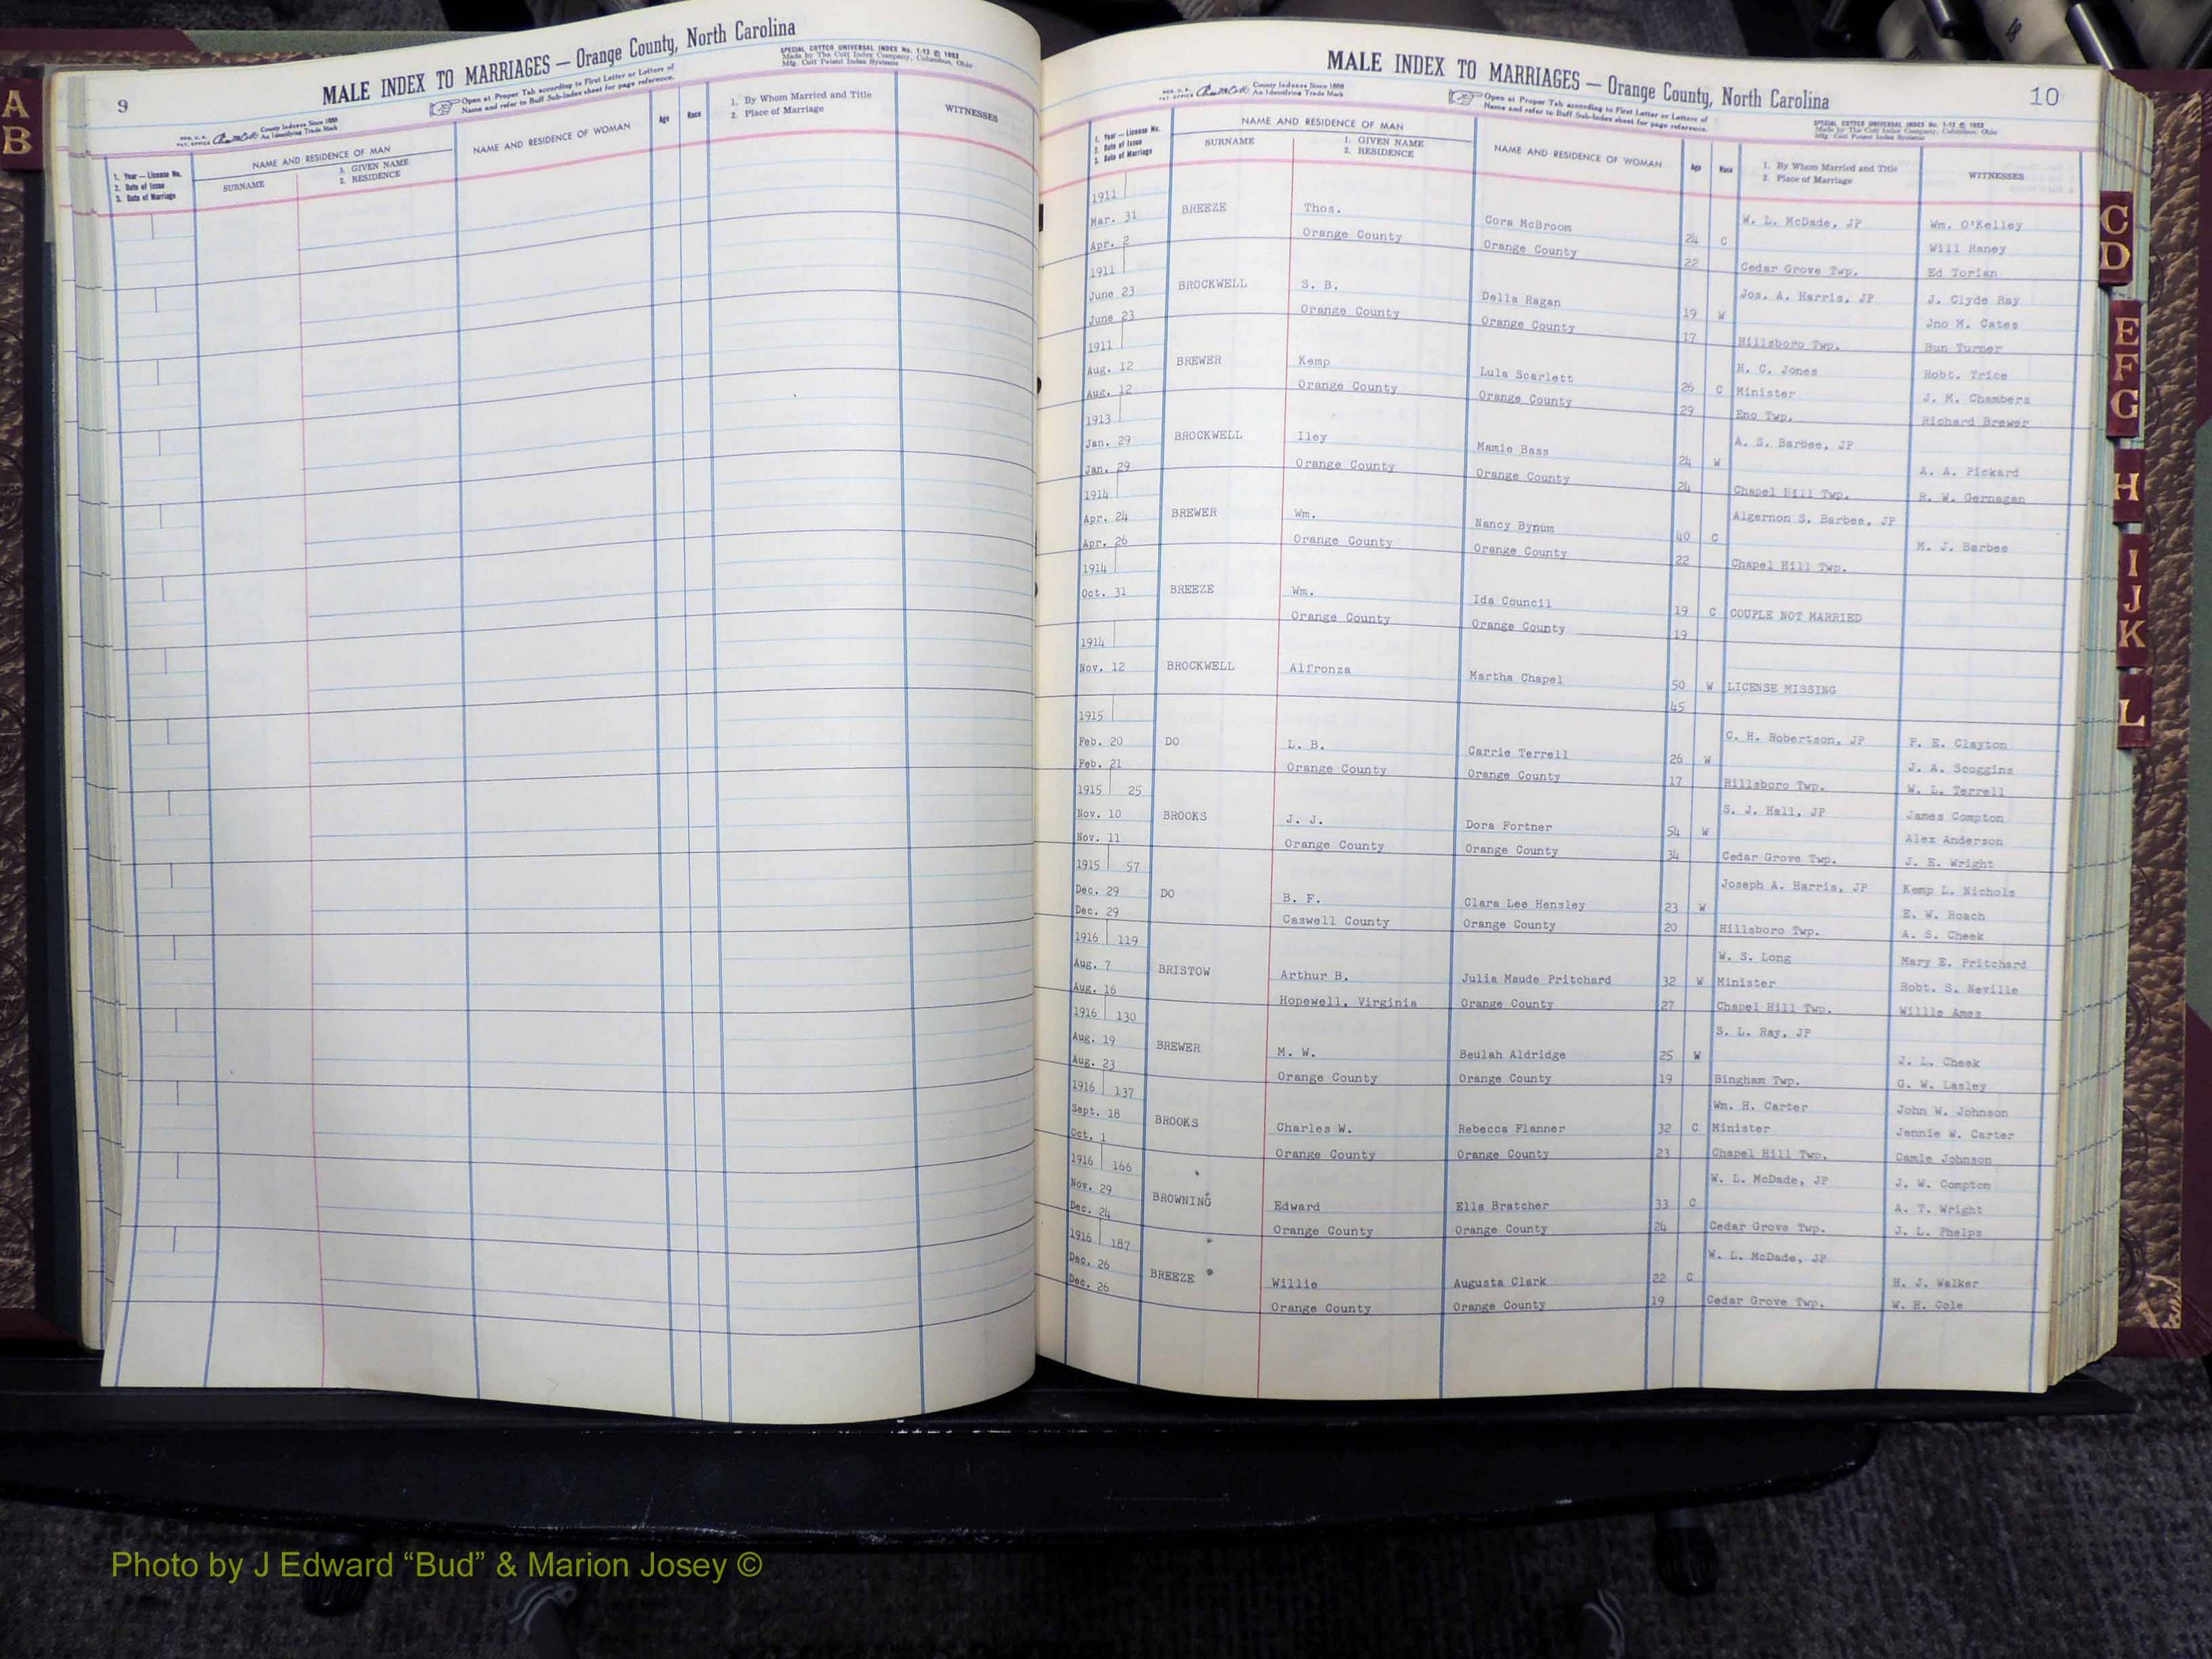 A
B
9
MALE INDEX TO MARRIAGES — Orange County, North Carolina
Open at Proper Tab according to First Letter or Letters of
Name and refer to Buff Sub-Index sheet for page reference.
SPECIAL COTTCO UNIVERSAL INDEX No. 1-12 © 1953
Made by The Cott Index Company, Columbus, Ohio
Mfg. Cott Patent Index Systems
County Indexes Since 1888
An Identifying Trade Mark
1. Year — License No.
2. Date of Issue
3. Date of Marriage
NAME AND RESIDENCE OF MAN
SURNAME
1. GIVEN NAME
2. RESIDENCE
NAME AND RESIDENCE OF WOMAN
Age
Race
1. By Whom Married and Title
2. Place of Marriage
WITNESSES
MALE INDEX TO MARRIAGES — Orange County, North Carolina
10
County Indexes Since 1888
An Identifying Trade Mark
Open at Proper Tab according to First Letter or Letters of
Name and refer to Buff Sub-Index sheet for page reference.
SPECIAL COTTCO UNIVERSAL INDEX No. 1-12 © 1953
Made by The Cott Index Company, Columbus, Ohio
Mfg. Cott Patent Index Systems
1. Year — License No.
2. Date of Issue
3. Date of Marriage
NAME AND RESIDENCE OF MAN
SURNAME
1. GIVEN NAME
2. RESIDENCE
NAME AND RESIDENCE OF WOMAN
Age
Race
1. By Whom Married and Title
2. Place of Marriage
WITNESSES
1911 W. L. McDade, JP Wm. O'Kelley
Mar. 31 BREEZE Thos. Cora McBroom 24 C Will Raney
Apr. 2 Orange County Orange County 22 Cedar Grove Twp. Ed Torian
1911 Jos. A. Harris, JP J. Clyde Ray
June 23 BROCKWELL S. B. Della Ragan 19 W Jno M. Cates
June 23 Orange County Orange County 17 Hillsboro Twp. Bun Turner
1911 H. C. Jones Robt. Trice
Aug. 12 BREWER Kemp Lula Scarlett 26 C Minister J. M. Chambers
Aug. 12 Orange County Orange County 29 Eno Twp. Richard Brewer
1913 A. S. Barbee, JP
Jan. 29 BROCKWELL Iley Mamie Bass 24 W A. A. Pickard
Jan. 29 Orange County Orange County 24 Chapel Hill Twp. H. W. Gernagan
1914 Algernon S. Barbee, JP
Apr. 24 BREWER Wm. Nancy Bynum 40 C M. J. Barbee
Apr. 26 Orange County Orange County 22 Chapel Hill Twp.
1914
Oct. 31 BREEZE Wm. Ida Council 19 C COUPLE NOT MARRIED
Orange County Orange County 19
1914
Nov. 12 BROCKWELL Alfronza Martha Chapel 50 W LICENSE MISSING
45
1915 C. H. Robertson, JP P. E. Clayton
Feb. 20 DO L. B. Carrie Terrell 26 W J. A. Scoggins
Feb. 21 Orange County Orange County 17 Hillsboro Twp. W. L. Terrell
1915 25 S. J. Hall, JP James Compton
Nov. 10 BROOKS J. J. Dora Fortner 54 W Alex Anderson
Nov. 11 Orange County Orange County 34 Cedar Grove Twp. J. E. Wright
1915 57 Joseph A. Harris, JP Kemp L. Nichols
Dec. 29 DO B. F. Clara Lee Hensley 23 W E. W. Roach
Dec. 29 Caswell County Orange County 20 Hillsboro Twp. A. S. Cheek
1916 119 W. S. Long Mary E. Pritchard
Aug. 7 BRISTOW Arthur B. Julia Maude Pritchard 32 W Minister Robt. S. Neville
Aug. 16 Hopewell, Virginia Orange County 27 Chapel Hill Twp. Willie Ames
1916 130 S. L. Ray, JP
Aug. 19 BREWER M. W. Beulah Aldridge 25 W J. L. Cheek
Aug. 23 Orange County Orange County 19 Bingham Twp. G. W. Lasley
1916 137 Wm. H. Carter John W. Johnson
Sept. 18 BROOKS Charles W. Rebecca Flanner 32 C Minister Jennie W. Carter
Oct. 1 Orange County Orange County 23 Chapel Hill Twp. Camie Johnson
1916 166 W. L. McDade, JP J. W. Compton
Nov. 29 BROWNING Edward Ella Bratcher 33 C A. T. Wright
Dec. 24 Orange County Orange County 24 Cedar Grove Twp. J. L. Phelps
1916 187 W. L. McDade, JP
Dec. 26 BREEZE Willie Augusta Clark 22 C H. J. Walker
Dec. 26 Orange County Orange County 19 Cedar Grove Twp. W. H. Cole
C
D
E
F
G
H
I
J
K
L
Photo by J Edward “Bud” & Marion Josey ©